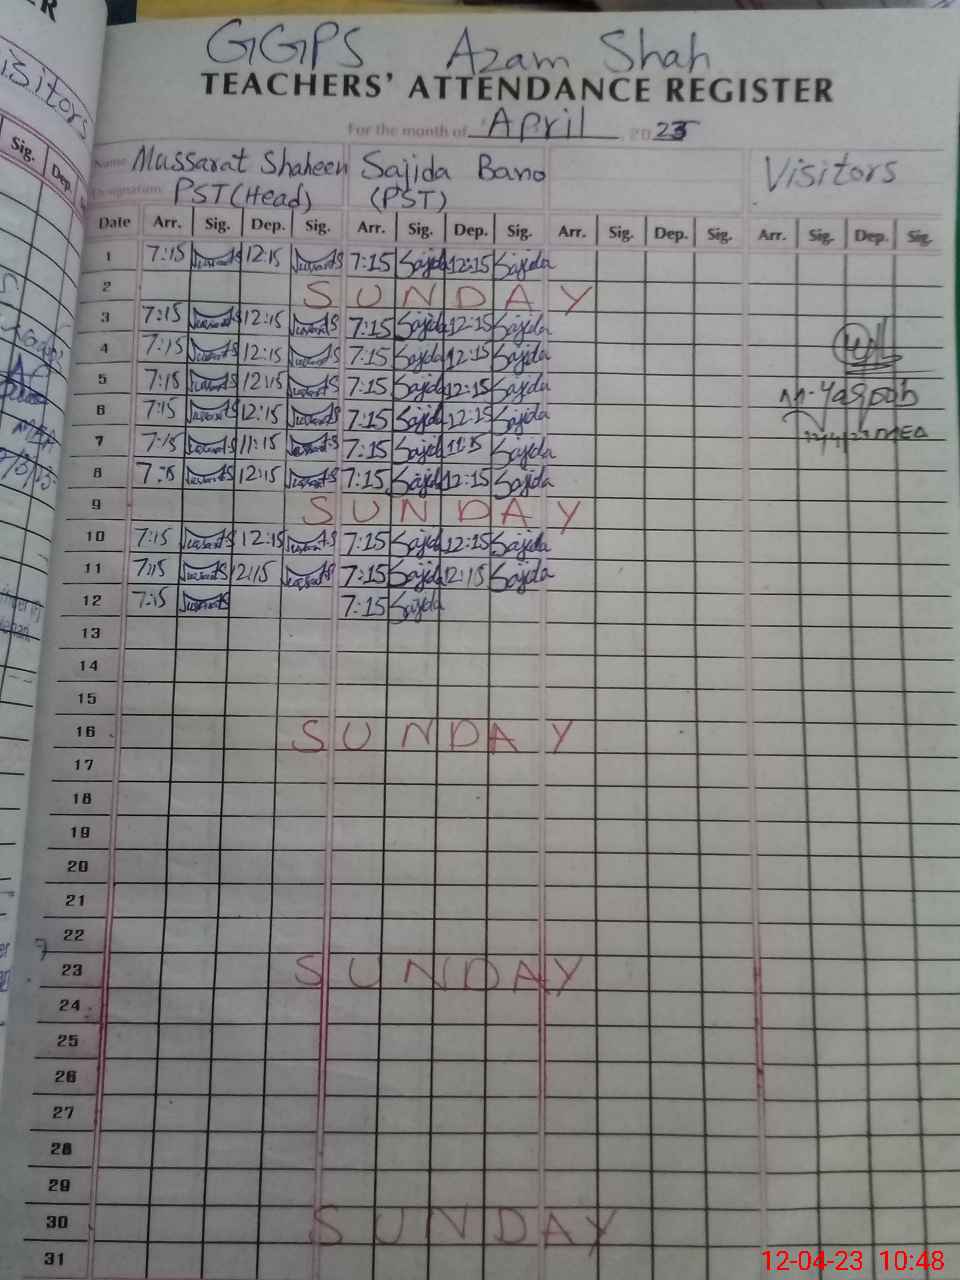 GGPS Azam Shah
TEACHERS' ATTENDANCE REGISTER
For the month of April 2023
Name Mussarat Shaheen Sajida Bano Visitors
Designation PST (Head) (PST)
Date Arr. Sig. Dep. Sig. Arr. Sig. Dep. Sig. Arr. Sig. Dep. Sig. Arr. Sig. Dep. Sig.
1 7:15 12:15 7:15 Sajida 12:15 Sajida
2 SUNDAY
3 7:15 12:15 7:15 Sajida 12:15 Sajida
4 7:15 12:15 7:15 Sajida 12:15 Sajida
5 7:15 12:15 7:15 Sajida 12:15 Sajida
6 7:15 12:15 7:15 Sajida 12:15 Sajida
7 7:15 11:15 7:15 Sajida 11:15 Sajida
8 7:15 12:15 7:15 Sajida 12:15 Sajida
9 SUNDAY
10 7:15 12:15 7:15 Sajida 12:15 Sajida
11 7:15 12:15 7:15 Sajida 12:15 Sajida
12 7:15 7:15 Sajida
13
14
15
16 SUNDAY
17
18
19
20
21
22
23 SUNDAY
24
25
26
27
28
29
30 SUNDAY
31
M. Yaqoob
12/4/23 MEA
isitors
Sig. Dep.
12-04-23 10:48